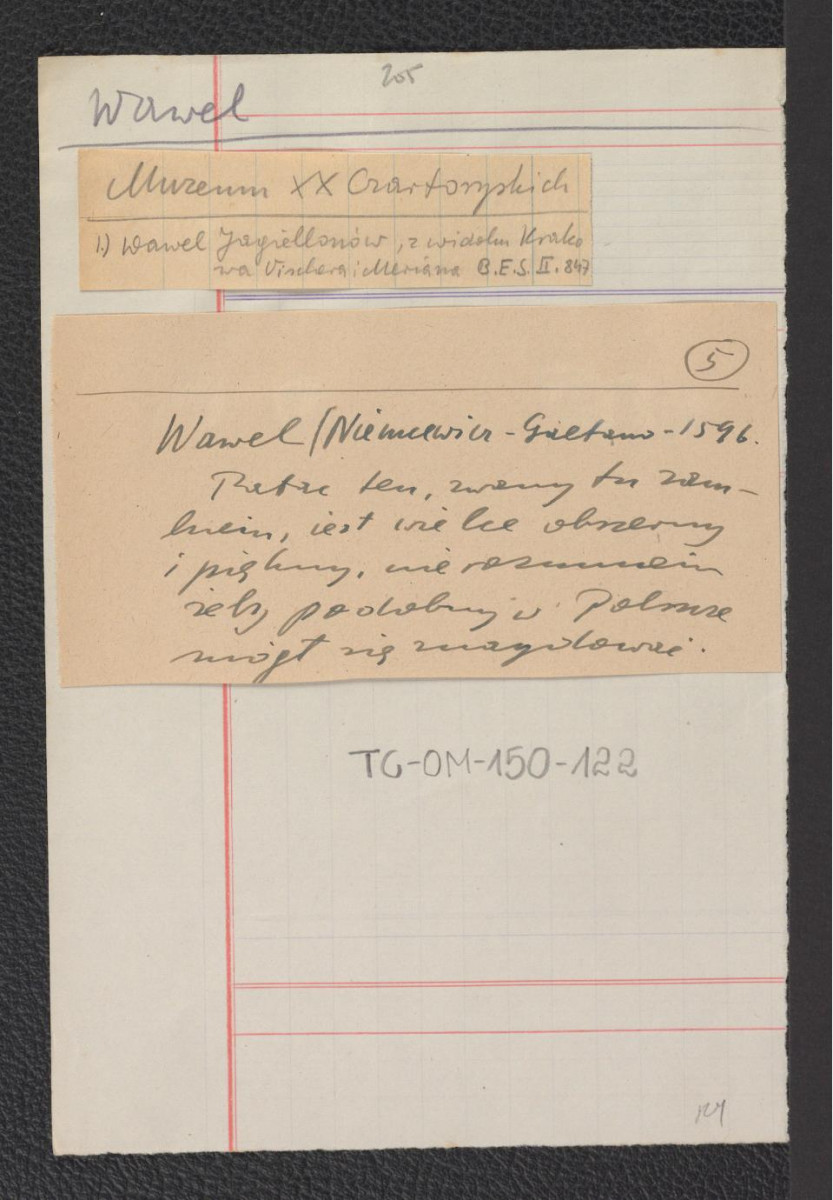 205
Wawel
Muzeum XX Czartoryskich
1.) Wawel Jagiellonów, z widoku Krako
wa Vischera i Meriana B.E.S. II. 847
5
Wawel (Niemcewicz - Gaetano - 1596.
Pałac ten, zwany tu zam-
kiem, jest wielce obszerny
i piękny, nie rozumiem
żeby podobny w Polszcze
mógł się znajdować.
TG-OM-150-122